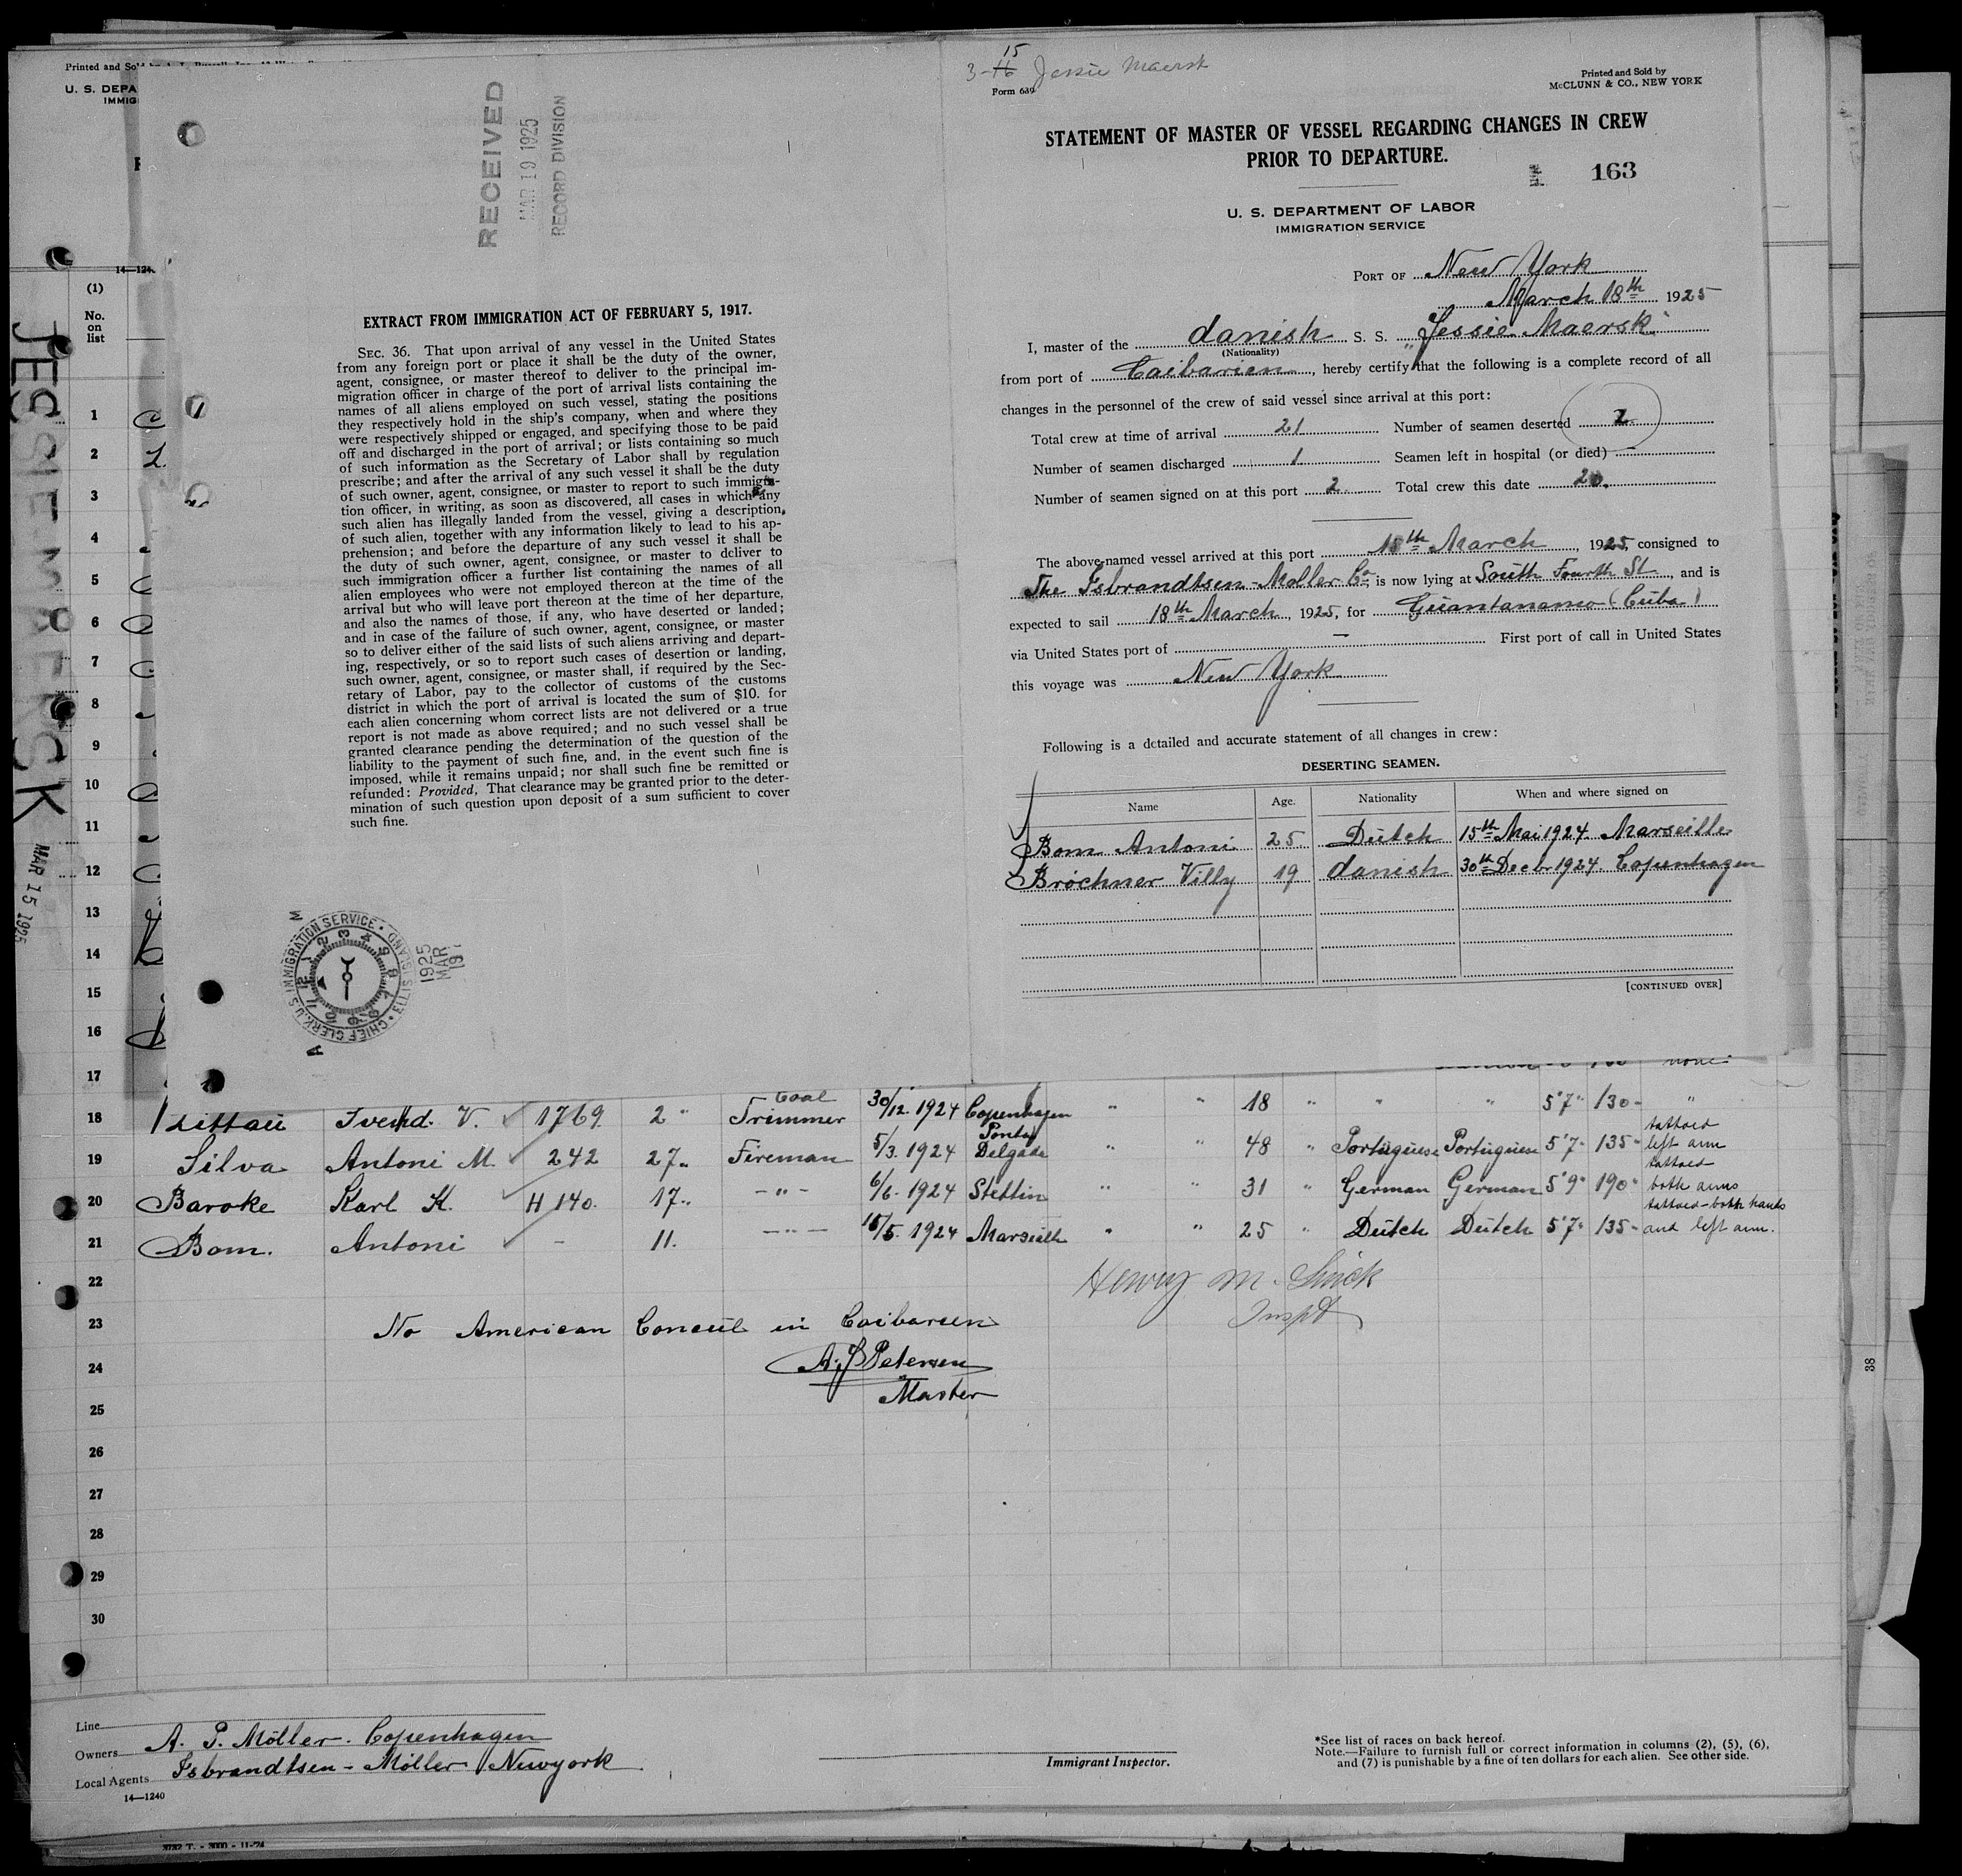 Printed and So
U. S. DEPA
IMMIG
14—124
(1)
No.
on
list
JESSIE MÆRSK
MAR 15 1925
RECEIVED
MAR 19 1925
RECORD DIVISION
EXTRACT FROM IMMIGRATION ACT OF FEBRUARY 5, 1917.
SEC. 36. That upon arrival of any vessel in the United States
from any foreign port or place it shall be the duty of the owner,
agent, consignee, or master thereof to deliver to the principal im-
migration officer in charge of the port of arrival lists containing the
names of all aliens employed on such vessel, stating the positions
they respectively hold in the ship's company, when and where they
were respectively shipped or engaged, and specifying those to be paid
off and discharged in the port of arrival; or lists containing so much
of such information as the Secretary of Labor shall by regulation
prescribe; and after the arrival of any such vessel it shall be the duty
of such owner, agent, consignee, or master to report to such immigra-
tion officer, in writing, as soon as discovered, all cases in which any
such alien has illegally landed from the vessel, giving a description
of such alien, together with any information likely to lead to his ap-
prehension; and before the departure of any such vessel it shall be
the duty of such owner, agent, consignee, or master to deliver to
such immigration officer a further list containing the names of all
alien employees who were not employed thereon at the time of the
arrival but who will leave port thereon at the time of her departure,
and also the names of those, if any, who have deserted or landed;
and in case of the failure of such owner, agent, consignee, or master
so to deliver either of the said lists of such aliens arriving and depart-
ing, respectively, or so to report such cases of desertion or landing,
such owner, agent, consignee, or master shall, if required by the Sec-
retary of Labor, pay to the collector of customs of the customs
district in which the port of arrival is located the sum of $10. for
each alien concerning whom correct lists are not delivered or a true
report is not made as above required; and no such vessel shall be
granted clearance pending the determination of the question of the
liability to the payment of such fine, and, in the event such fine is
imposed, while it remains unpaid; nor shall such fine be remitted or
refunded: Provided, That clearance may be granted prior to the deter-
mination of such question upon deposit of a sum sufficient to cover
such fine.
U.S. IMMIGRATION SERVICE • ELLIS ISLAND • CHIEF CLERK
1925
MAR
19
3-15 Jessie Maersk
Form 639
Printed and Sold by
McCLUNN & CO., NEW YORK
STATEMENT OF MASTER OF VESSEL REGARDING CHANGES IN CREW
PRIOR TO DEPARTURE.
163
U. S. DEPARTMENT OF LABOR
IMMIGRATION SERVICE
PORT OF New York
March 18th 1925
I, master of the danish S. S. "Jessie Maersk"
(Nationality)
from port of Caibarien, hereby certify that the following is a complete record of all
changes in the personnel of the crew of said vessel since arrival at this port:
Total crew at time of arrival 21 Number of seamen deserted 2
Number of seamen discharged 1 Seamen left in hospital (or died) —
Number of seamen signed on at this port 2 Total crew this date 20.
The above-named vessel arrived at this port 15th March, 1925, consigned to
The Isbrandtsen-Moller Co, is now lying at South Fourth St, and is
expected to sail 18th March, 1925, for Guantanamo (Cuba)
via United States port of — First port of call in United States
this voyage was New York
Following is a detailed and accurate statement of all changes in crew:
DESERTING SEAMEN.
Name Age. Nationality When and where signed on
Bom Antoni 25 Dutch 15th Mai 1924 Marseille
Bröchner Villy 19 danish 30th Decbr 1924 Copenhagen
[CONTINUED OVER]
1
2
3
4
5
6
7
8
9
10
11
12
13
14
15
16
17 none
18 Svend. V. 1769 2 " Coal Trimmer 30/12. 1924 Copenhagen " " 18 " " " 5'7" 130- "
19 Silva Antoni M. 242 27" Fireman 5/3. 1924 Ponta Delgada " " 48 " Portuguese Portuguese 5'7" 135- tattoed left arm
20 Baroke Karl K. H 140. 17" -"- 6/6. 1924 Stettin " " 31 " German German 5'9" 190" tattoed both arms
21 Bom. Antoni - 11. -"- 15/5. 1924 Marseille " " 25 " Dutch Dutch 5'7" 135- tattoed-both hands and left arm.
22
Henry M.
Inspt
23 No American Consul in Caibarien
24 A. J Petersen
Master
25
26
27
28
29
30
38
Line
Owners A. P. Möller. Copenhagen
Local Agents Isbrandtsen-Möller Newyork
14—1240
Immigrant Inspector.
*See list of races on back hereof.
Note.—Failure to furnish full or correct information in columns (2), (5), (6),
and (7) is punishable by a fine of ten dollars for each alien. See other side.